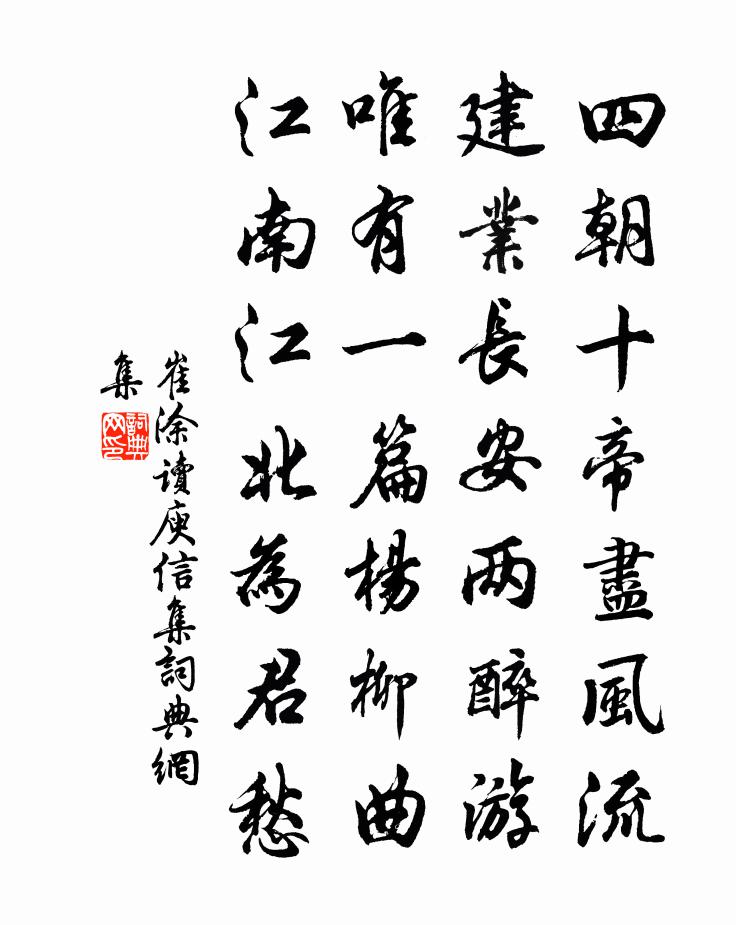 四朝十帝盡風流
建業長安两醉游
唯有一篇楊柳曲
江南江北為君愁
崔涂讀庾信集詞典網
集
詞典
网印